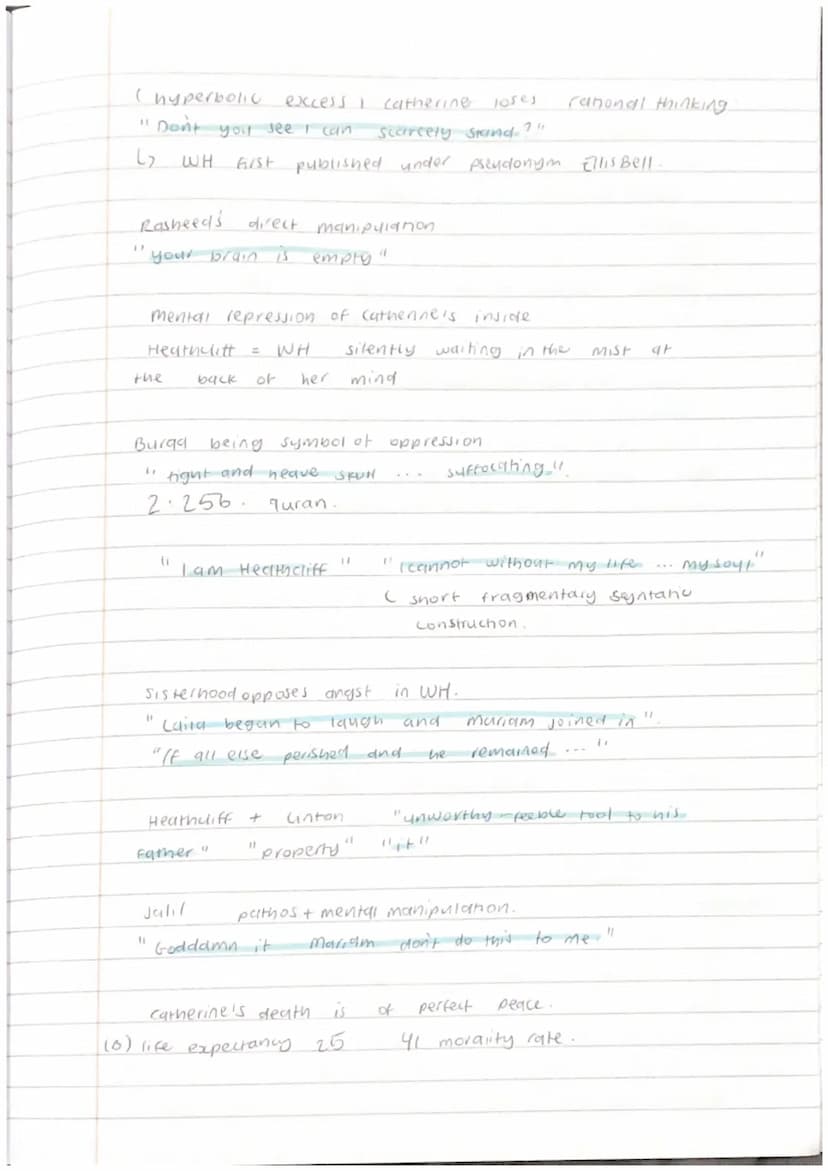 ( hyperbolic excess, catherine loses rational thinking
"Don't you see I can scarcely stand?"
↳ WH first published under pseudonym Ellis Bell.
Rasheed's direct manipulation
"your brain is empty"
mental repression of Catherine's inside
Heathcliff = WH silently waiting in the mist at
the back of her mind
Burqa being symbol of oppression
"tight and heave skull ... suffocating".
2.256. quran.
"I am Heathcliff" "I cannot without my life ... my soul"
( short fragmentary syntatic
construction.
Sisterhood opposes angst in WH.
"Laila began to laugh and Mariam joined in".
"If all else perished and he remained ..."
Heathcliff + Linton "unworthy-feeble tool to his
Father" "property" "it"
Jalil pathos + mental manipulation.
"Goddamn it Mariam don't do this to me."
Catherine's death is of perfect peace.
(o) life expectancy 25 41 morality rate.